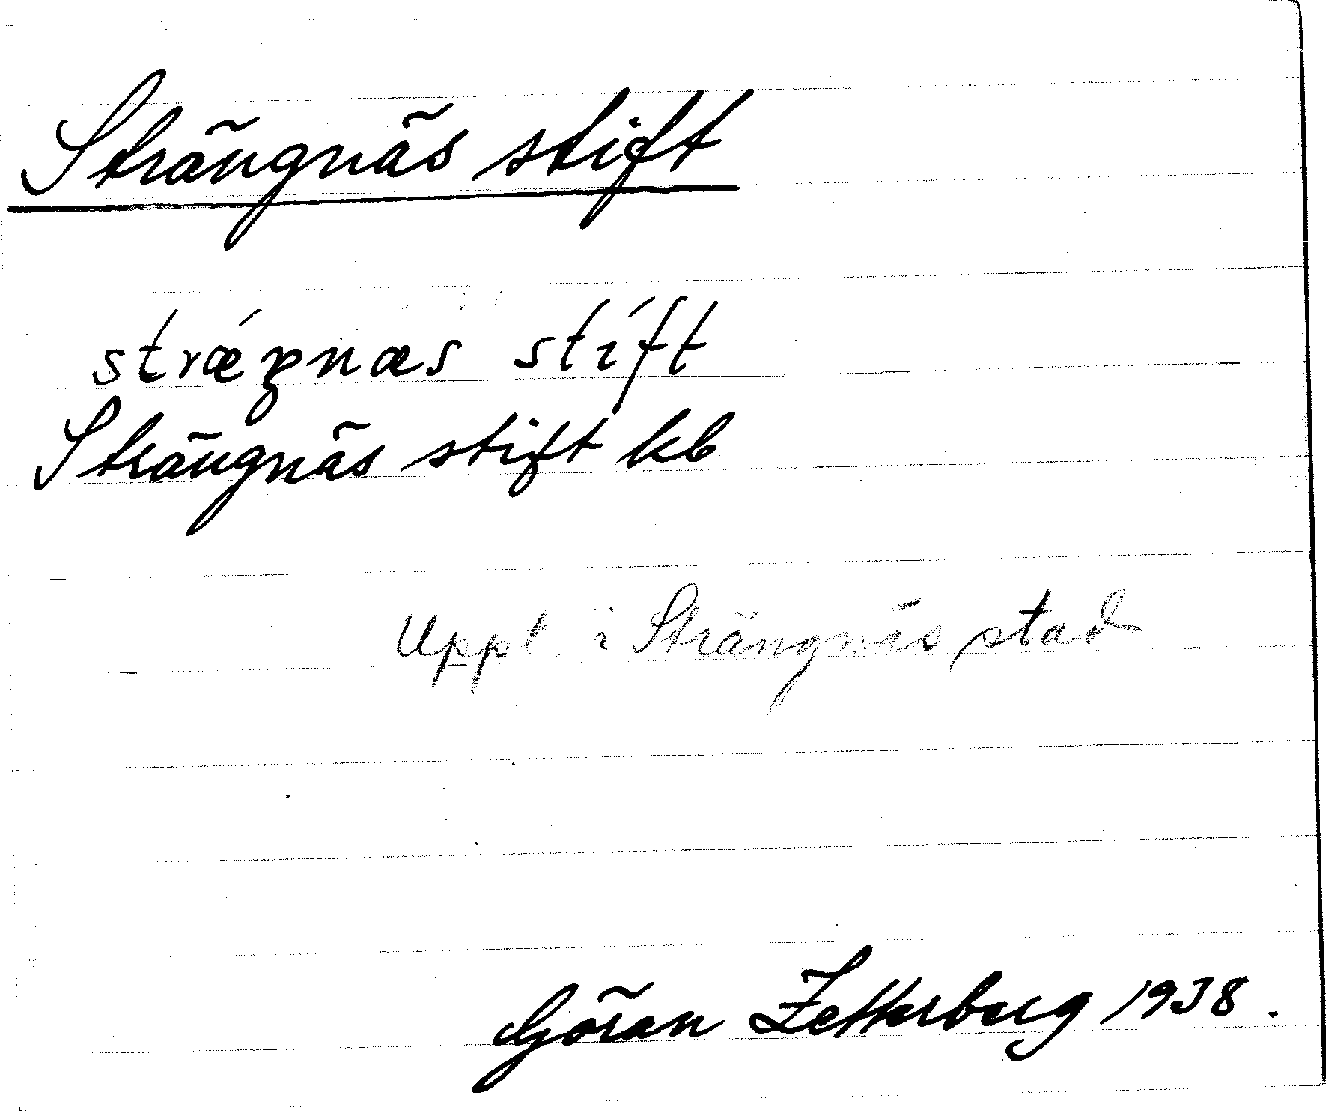 Strängnäs stift
strǽŋnæs stíft
Strängnäs stift kb
Uppt i Strängnäs stad
Göran Zetterberg 1938.